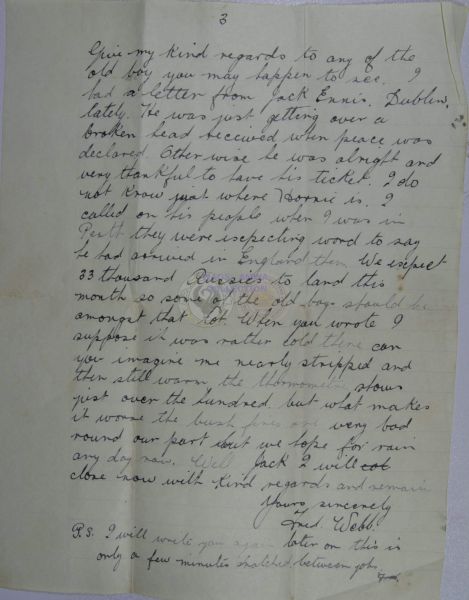 3
Give my kind regards to any of the
old boy you may happen to see. I
had a letter from Jack Ennis. Dublin,
lately. He was just getting over a
broken head received when peace was
declared. Otherwise he was alright and
very thankful to have his ticket. I do
not know just where Horrie is. I
called on his people when I was in
Perth they were iscpecting word to say
he had arrived in England then. We iscpect
33 thousand Aussies to land this
month so some of the old boys should be
amongst that lot. When you wrote I
suppose it was rather cold there can
you imagine me nearly stripped and
then still warm, the thermometre stows
just over the hundred. but what makes
it worse the bush fires are very bad
round our part but we hope for rain
any day now. Well Jack I will
close now with kind regards and remain
Yours sincerely
Fred. Webb.
P.S. I will write you again later on this is
only a few minutes snatched between jobs